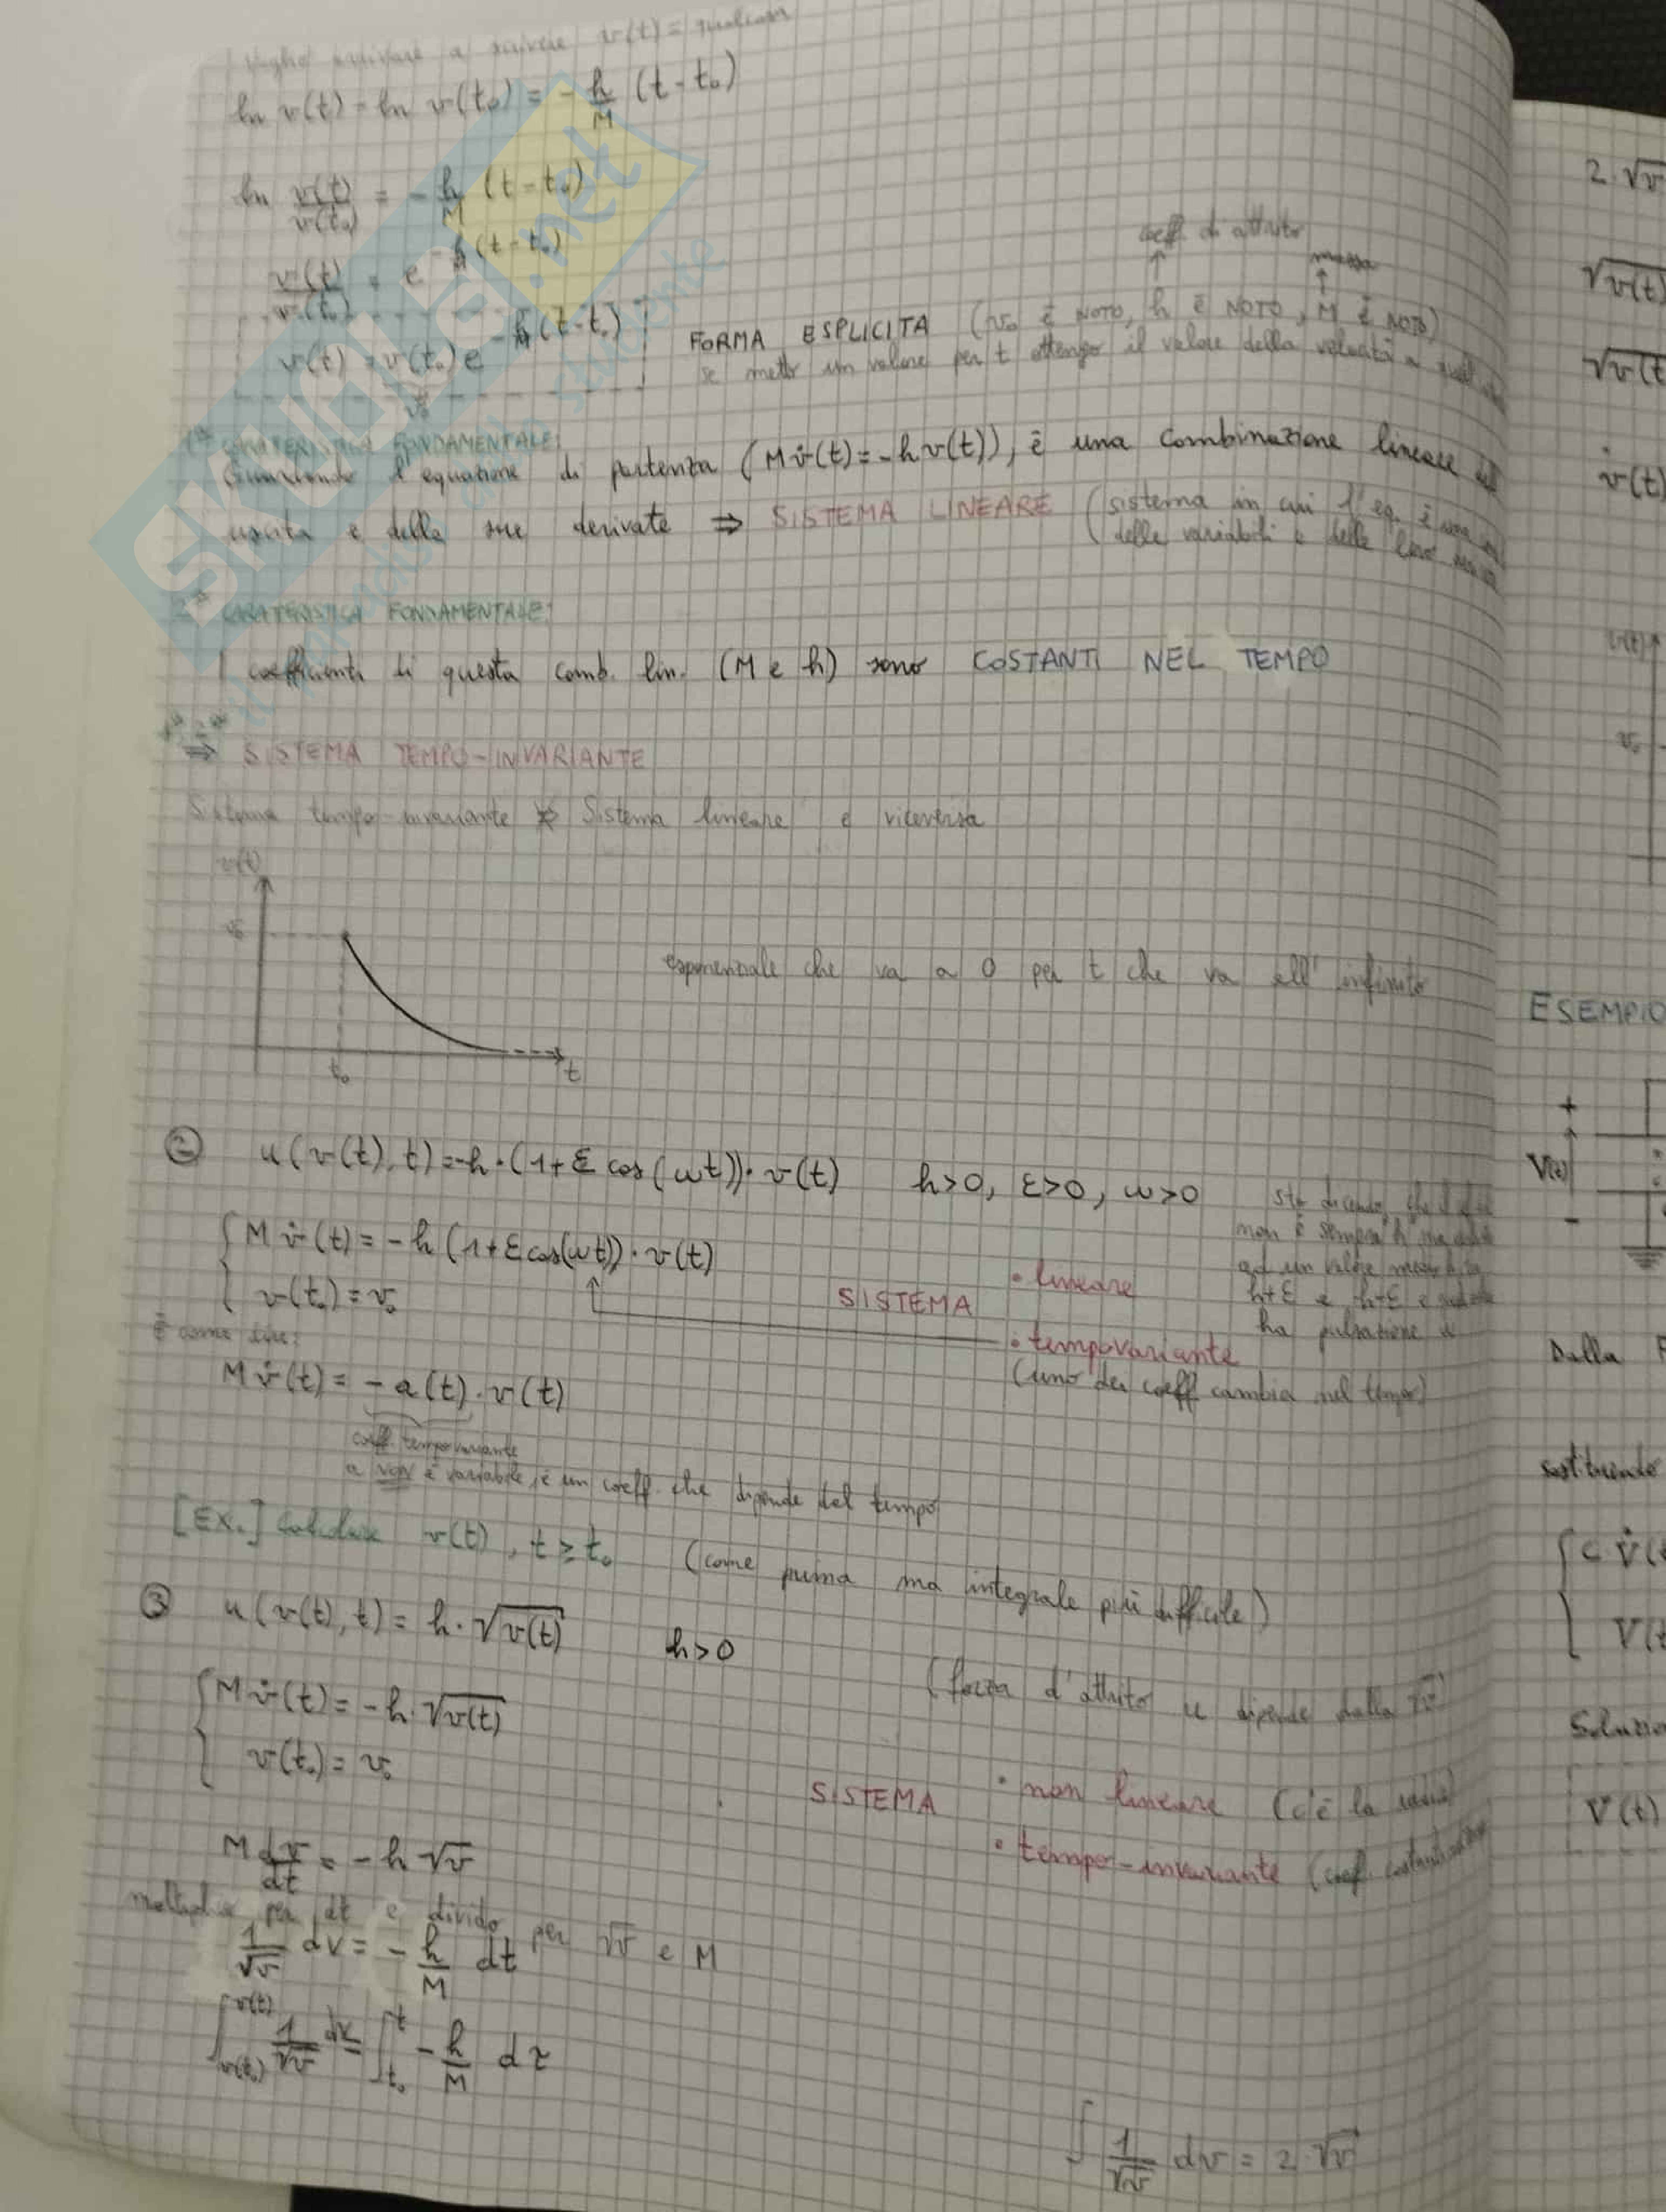 Voglio arrivare a scrivere v(t) = qualcosa
ln v(t) - ln v(t₀) = -h/M (t-t₀)
ln v(t)/v(t₀) = -h/M (t-t₀)
v(t)/v(t₀) = e^(-h/M (t-t₀))
v(t) = v(t₀) e^(-h/M (t-t₀))
v₀
coeff. di attrito
massa
FORMA ESPLICITA (v₀ è NOTO, h è NOTO, M è NOTO)
se metto un valore per t ottengo il valore della velocità a
1ª CARATERISTICA FONDAMENTALE:
Guardando l'equazione di partenza (M v̇(t) = -h v(t)), è una combinazione lineare
uscita e delle sue derivate ⇒ SISTEMA LINEARE (sistema in cui l'eq. è una
delle variabili e delle loro
2ª CARATERISTICA FONDAMENTALE:
I coefficienti di questa comb. lin. (M e h) sono COSTANTI NEL TEMPO
1ª 2ª
⇒ SISTEMA TEMPO-INVARIANTE
Sistema tempo-invariante ⇏ Sistema lineare e viceversa
v(t)
v₀
t₀
t
esponenziale che va a 0 per t che va all'infinito
② u(v(t), t) = -h·(1+ε cos(ωt))·v(t) h>0, ε>0, ω>0
{ M v̇(t) = -h (1+ε cos(ωt))·v(t)
v(t₀) = v₀
Sto dicendo che
non è sempre h ma
ad un valore
h+ε e h-ε e
ha pulsazione ω
SISTEMA
• lineare
• tempovariante
(uno dei coeff cambia nel tempo)
È come dire:
M v̇(t) = -a(t)·v(t)
coeff. tempovariante
a NON è variabile, è un coeff. che dipende dal tempo
[EX.] Calcolare v(t), t ≥ t₀ (come prima ma integrale più difficile)
③ u(v(t), t) = h·√v(t) h>0
(forza d'attrito u dipende dalla √v)
{ M v̇(t) = -h·√v(t)
v(t₀) = v₀
SISTEMA
• non lineare (c'è la radice)
• tempo-invariante (coef. costanti
M dv/dt = -h √v
moltiplico per dt e divido per √v e M
1/√v dv = -h/M dt
∫_{v(t₀)}^{v(t)} 1/√v dv = ∫_{t₀}^{t} -h/M dτ
∫ 1/√v dv = 2 √v
2·√v
√v(t)
√v(t
v̇(t)
v(t)
v₀
ESEMPIO
+
V(t)
-
Dalla
sostituendo
{ C V̇(t
V(t
Soluzio
V(t)
SKUOLA.net
il paradiso dello studente